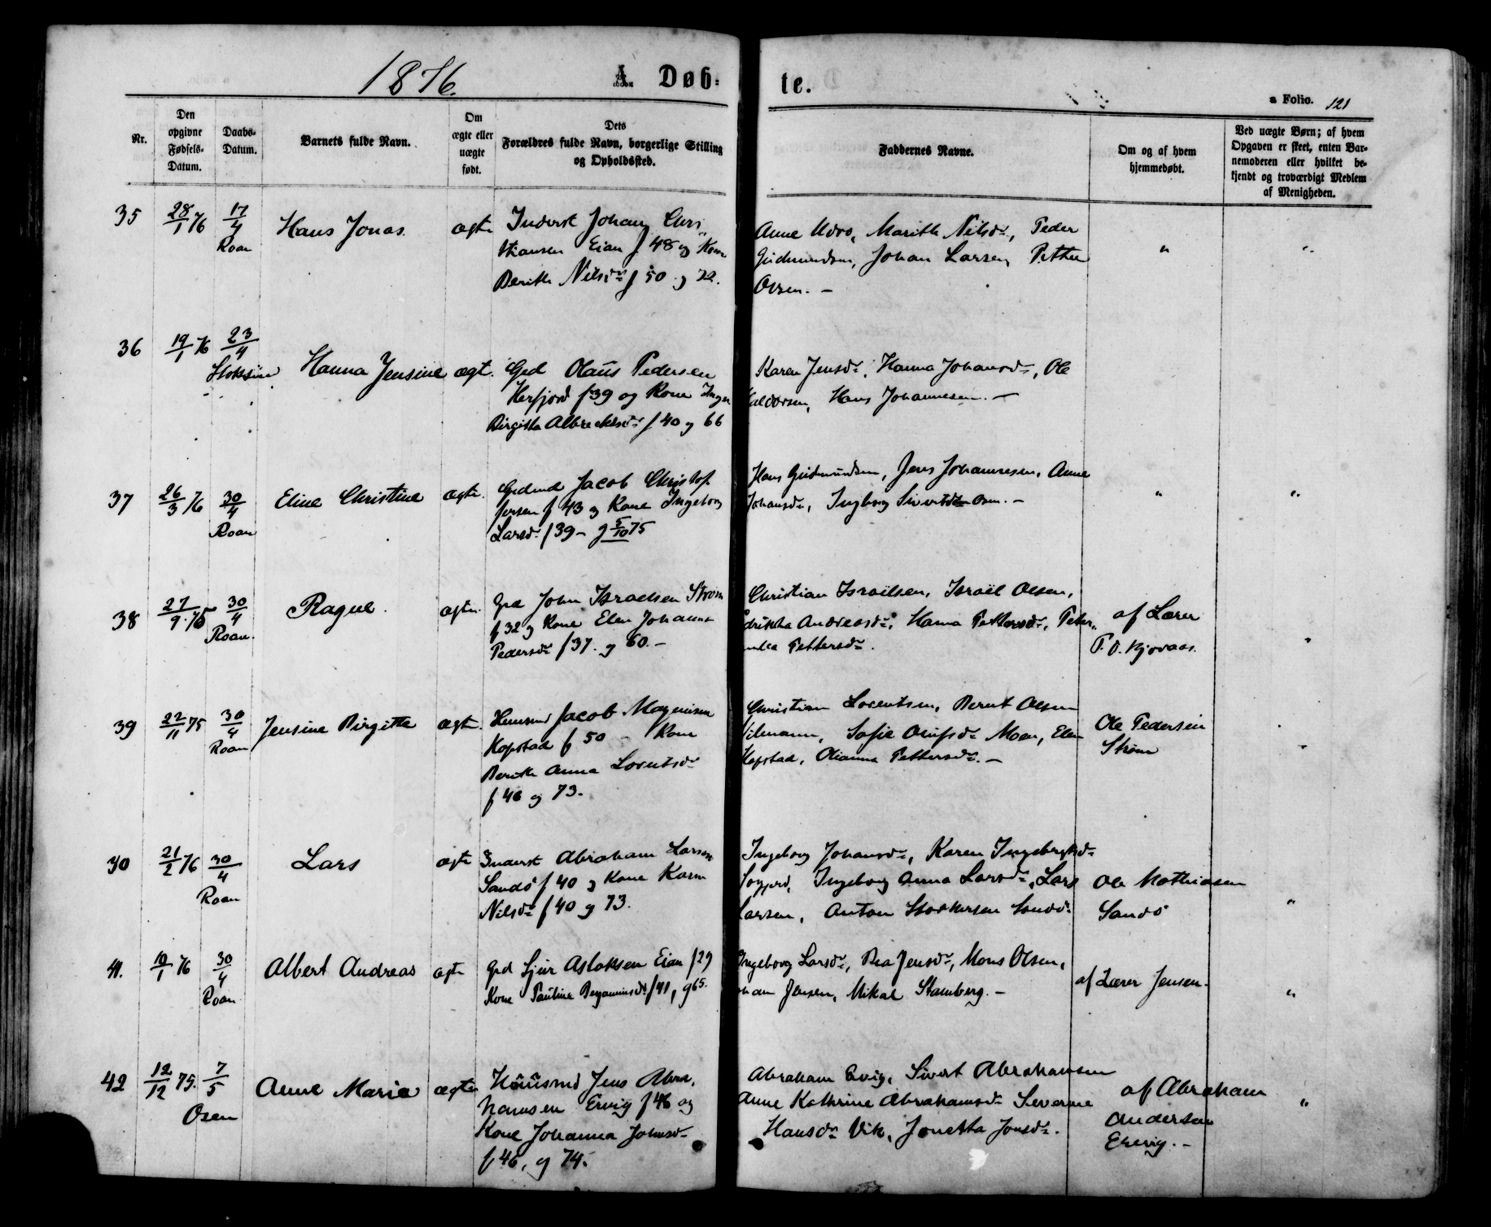 1876.
A. Døb-
te.
a Folio. 121
Nr.
Den opgivne Fødsels-Datum.
Daabs-Datum.
Barnets fulde Navn.
Om ægte eller uægte født.
Dets Forældres fulde Navn, borgerlige Stilling og Opholdssted.
Faddernes Navne.
Om og af hvem hjemmedøbt.
Ved uægte Børn; af hvem Opgaven er skeet, enten Barnemoderen eller hvilket bekjendt og troværdigt Medlem af Menigheden.
35
28/1 76
17/4
Roan
Hans Jonas.
ægte
Inderst Johan Chris
tiansen Eian f 48 og Kone
Berith Nilsdr f 50 g 72.
Anne Moro, Marith Nilsdr, Peder
Gudmundsen, Johan Larsen, Petter
Olsen. –
"
"
36
19/1 76
23/4
Stoksund
Hanna Jensine
ægt.
Grd Olaus Pedersen
Herfjord f 39 og Kone Inger
Birgitta Albrechtsdr f 40 g 66
Karen Jensdr, Hanna Johansdr, Ole
Haldorsen, Hans Johannesen. –
37
26/3 76
30/4
Roan
Eline Christine
ægte.
Grdmd Jacob Christof
fersen f 43 g Kone Ingeborg
Larsdr f 39 – g 5/10 75
Hans Gudmundsen, Jens Johannesen, Anne
Johansdr, Ingborg Sivertsdr Osen. –
"
"
38
27/9 75
30/4
Roan.
Ragne.
ægte.
Grd John Israelsen Strøm
f 32 g Kone Elen Johanna
Pedersdr f 37. g 60. –
Christian Israelsen, Israël Olsen,
Andreasdr, Hanna Pettersdr, Peter
Pettersdr.
af Lærer
P. O. Kjovaas.
"
39
22/11 75
30/4
Roan
Jensine Birgitta
ægte.
Husmd Jacob Magnusen
Hopstad f 50 – Kone
Berith Anna Lorentsdr
f 46 g 73.
Christian Lorentsen, Bernt Olsen
Sofie Olufsdr Moen, Elen
Hopstad, Olianna Pettersdr. –
Ole Pedersen
Strøm
"
30
21/2 76
30/4
Roan
Lars
ægte
Inderst Abraham Larsen
Sandø f 40 g Kone Karen
Nilsdr f 40 g 73.
Ingeborg Johansdr, Karen Ingebrigtsdr
Ingeborg Anna Larsdr, Lars
Larsen, Anton
Ole Mathiasen
Sandø
"
41.
10/1 76
30/4
Roan
Albert Andreas
ægte
Grd Sjur Aslaksen Eian f 29
Kone Pauline Benjaminsdr f 41, g 65.
Ingeborg Larsdr, Bea Jensdr, Mons Olsen,
Johan Jensen, Mikal Stamberg. –
af Lærer Jensen.
"
42
12/12 75.
7/5
Osen
Anne Marie
ægte
Huusmd Jens Abra-
hamsen Ervig f 46 og
Kone Johanna Johnsdr
f 46, g 74.
Abraham Ervig, Sivert Abrahamsen
Anne Kathrine Abrahamsdr Severine
Hansdr Vik, Jonetta Jonsdr.
af Abraham
Andersen
Erevig. –
"